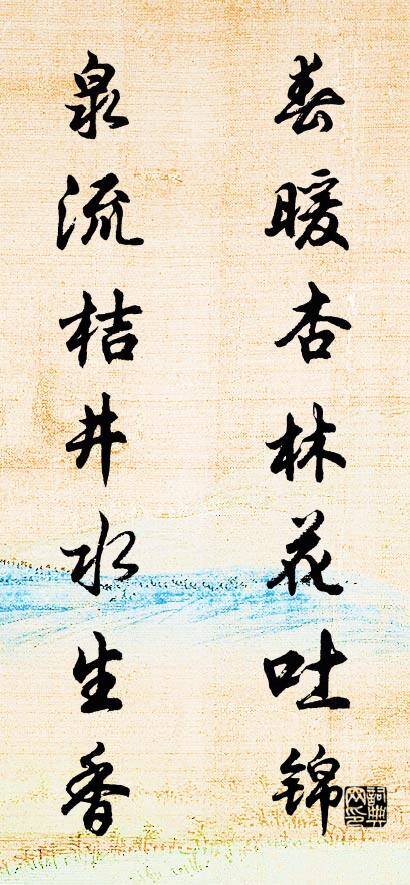 春暖杏林花吐锦
泉流桔井水生香
词典网印